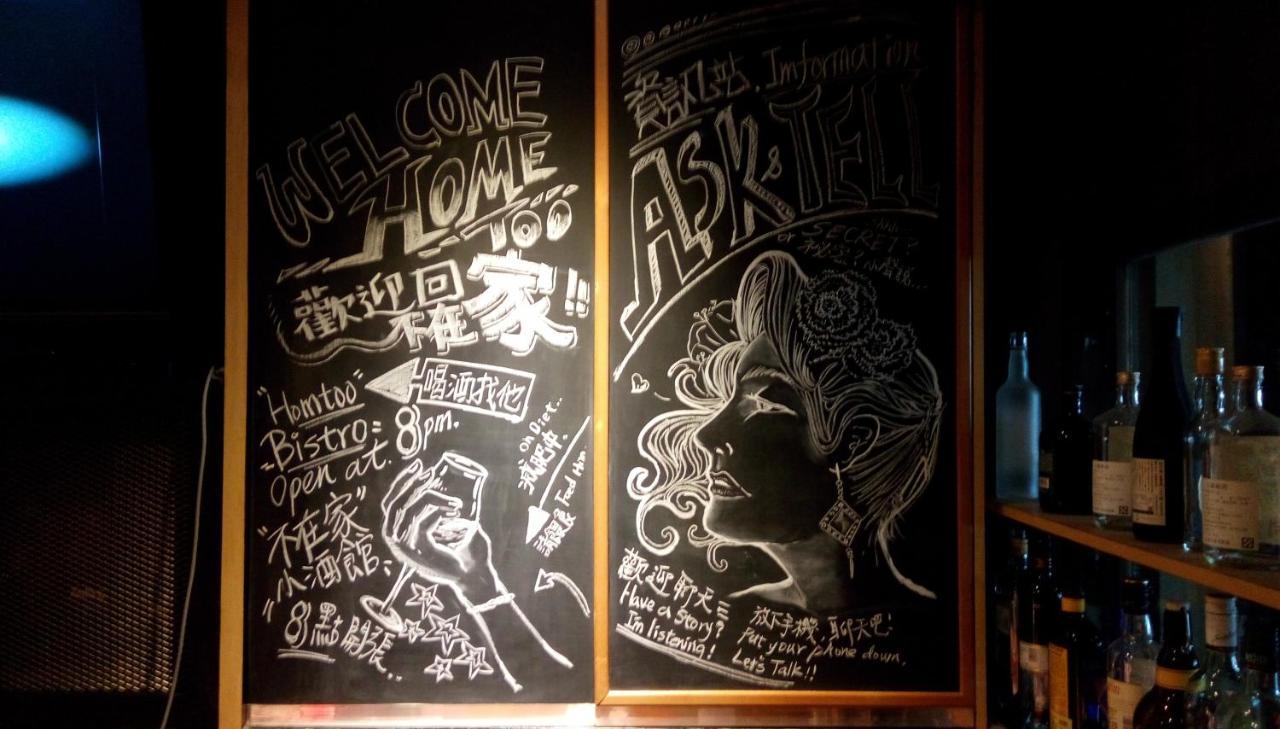 WELCOME
HOME
TOO
歡迎回家!!
不在
喝酒找他
"Homtoo"
Bistro
Open at 8pm.
"不在家"
小酒館
8點開張
on Diet..
減肥中
請餵食 Feed Him
資訊站. Imformation
ASK & TELL
or SECRET?
秘密?
歡迎聊天
Have a story?
I'm listening!
放下手機, 聊天吧!
Put your phone down,
Let's Talk!!